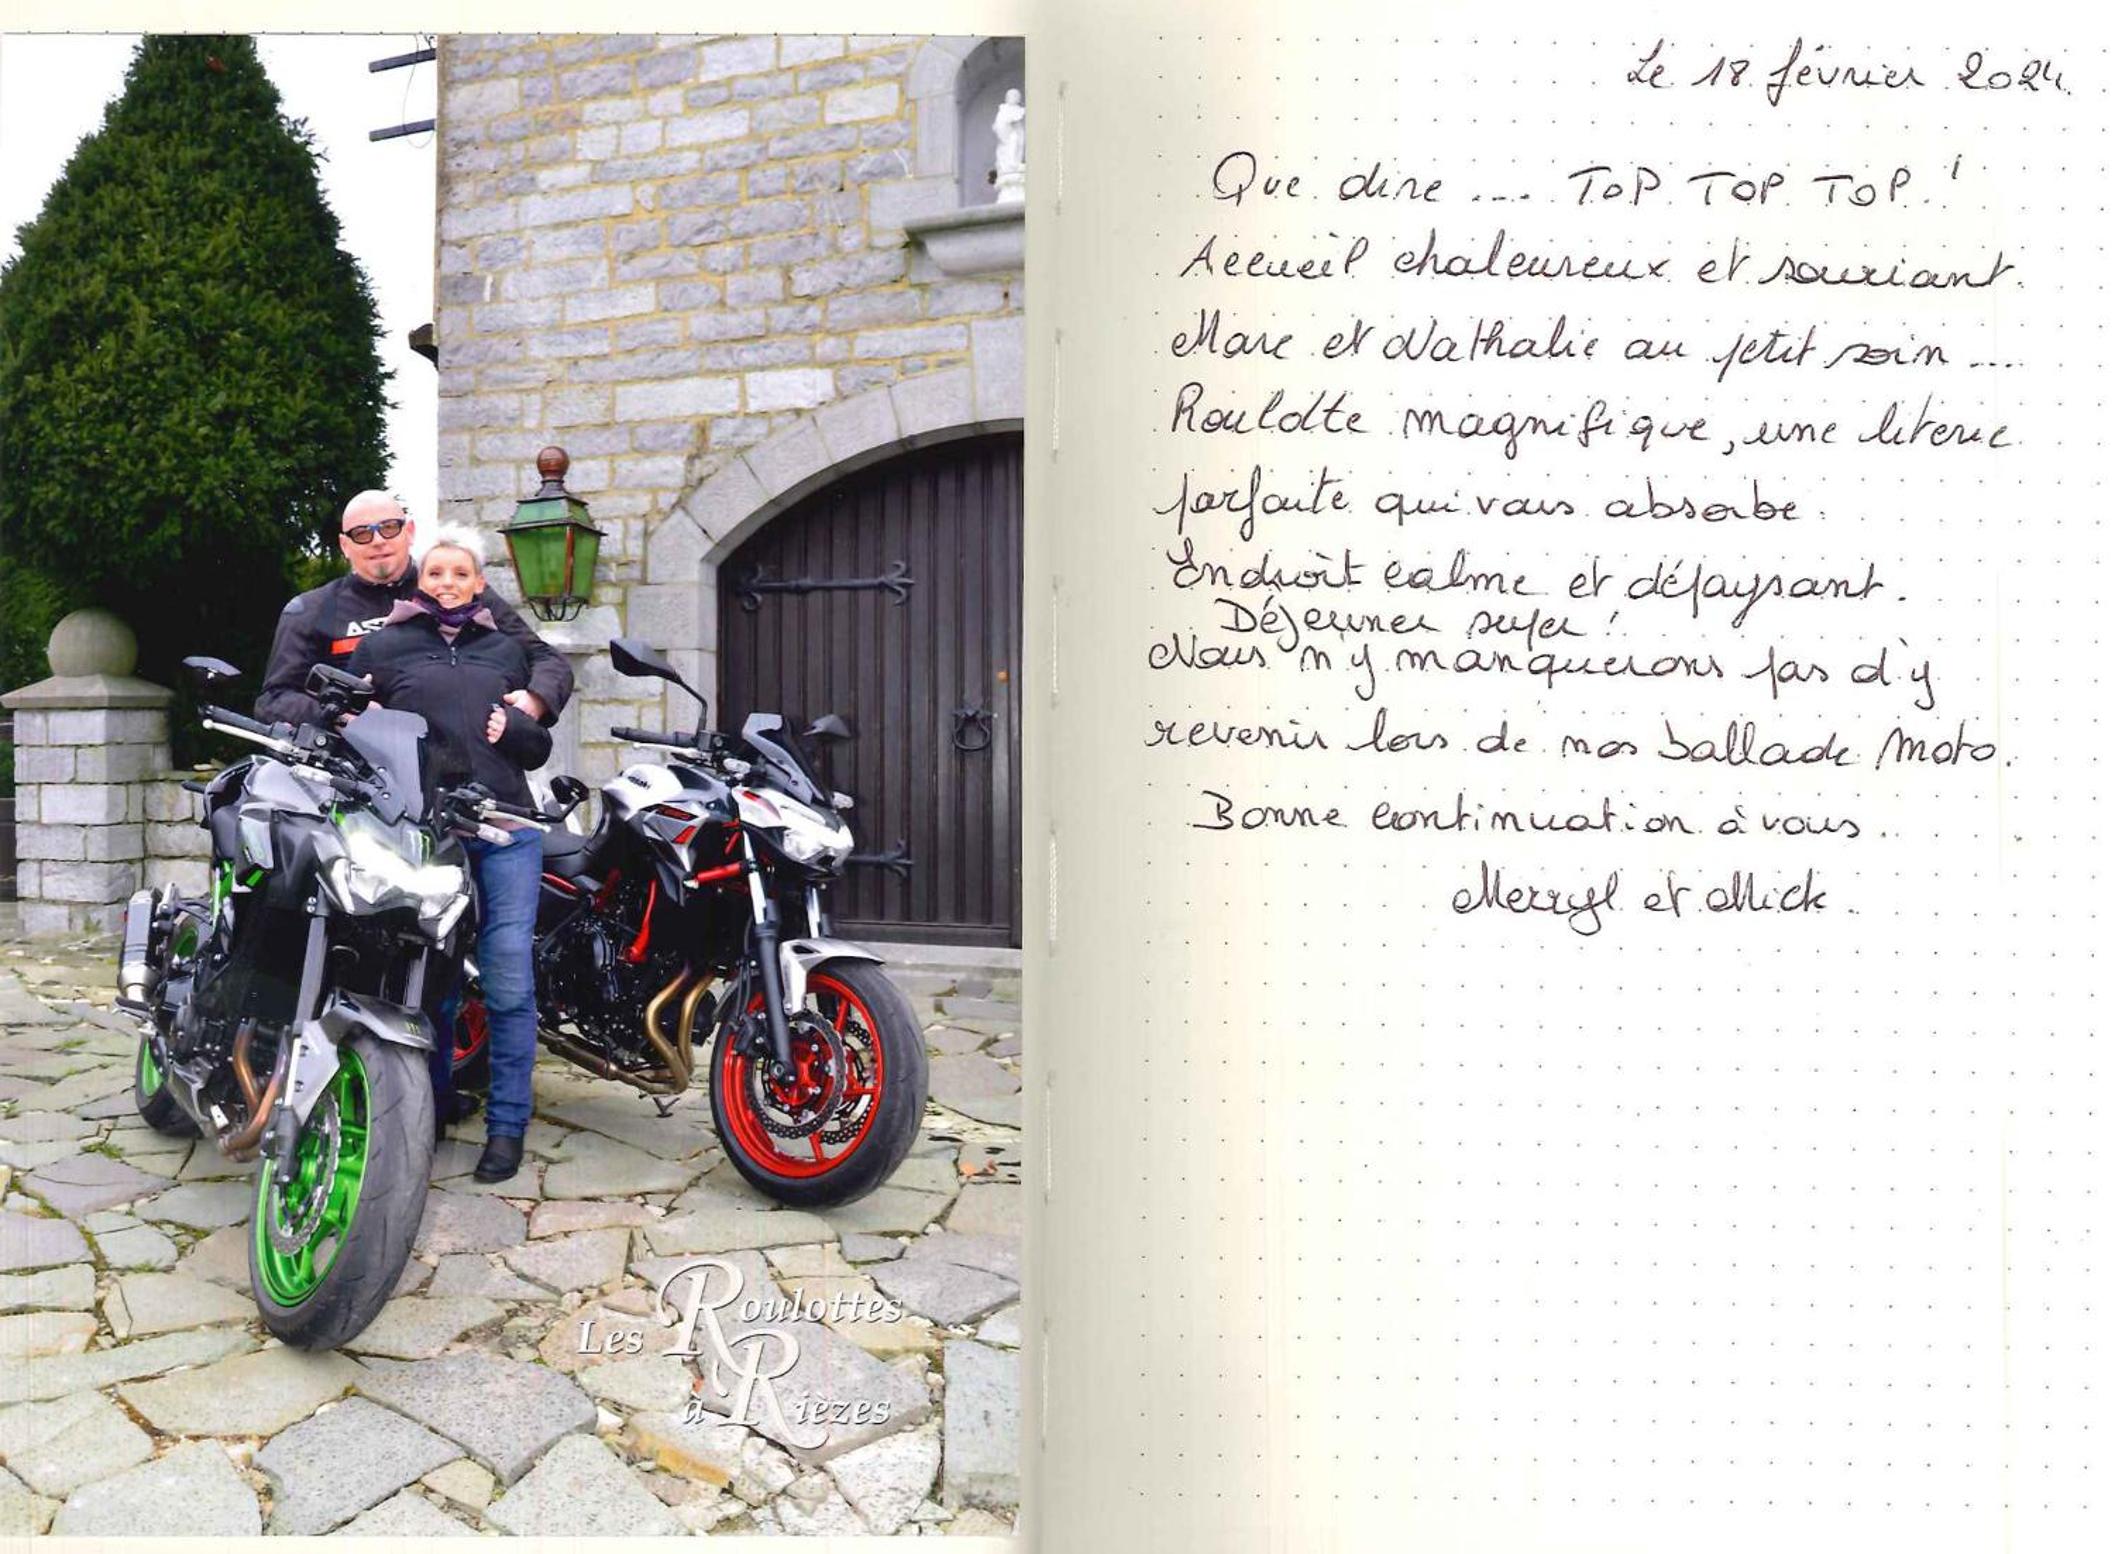 Le 18 février 2024.
Que dire .... TOP TOP TOP !
Accueil chaleureux et souriant.
Marc et Nathalie au petit soin ...
Roulotte magnifique, une literie
parfaite qui vous absorbe.
Endroit calme et dépaysant.
Déjeuner super !
Nous n'y manquerons pas d'y
revenir lors de nos ballade Moto.
Bonne continuation à vous.
Merryl et Mick.
Les Roulottes
à Rièzes